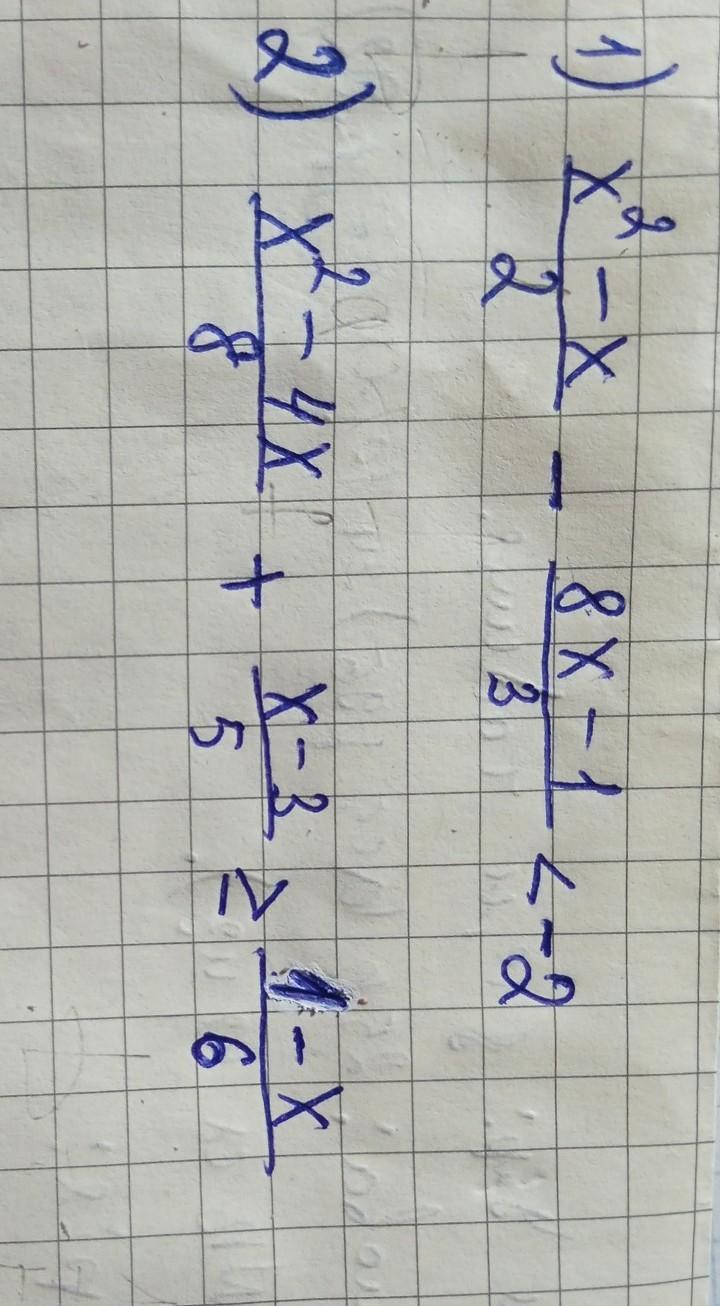 1) (x² - x)/2 - (8x - 1)/3 < -2
2) (x² - 4x)/8 + (x - 3)/5 ≥ (1 - x)/6